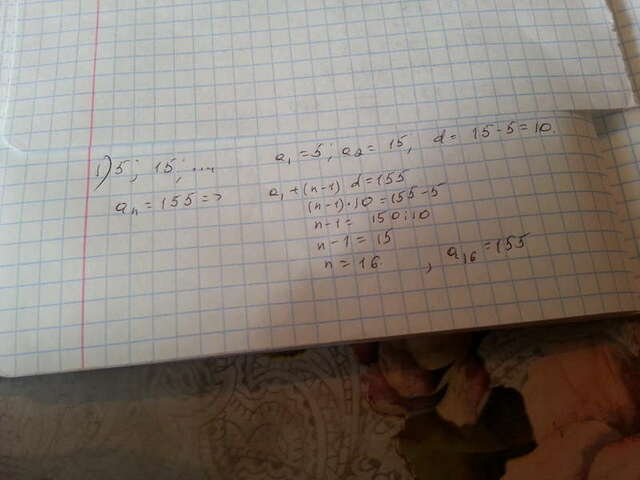 1) 5; 15; .... a₁ = 5; a₂ = 15, d = 15-5 = 10.
aₙ = 155 => a₁ + (n-1) d = 155
(n-1)·10 = 155-5
n-1 = 150:10
n-1 = 15
n = 16. , a₁₆ = 155